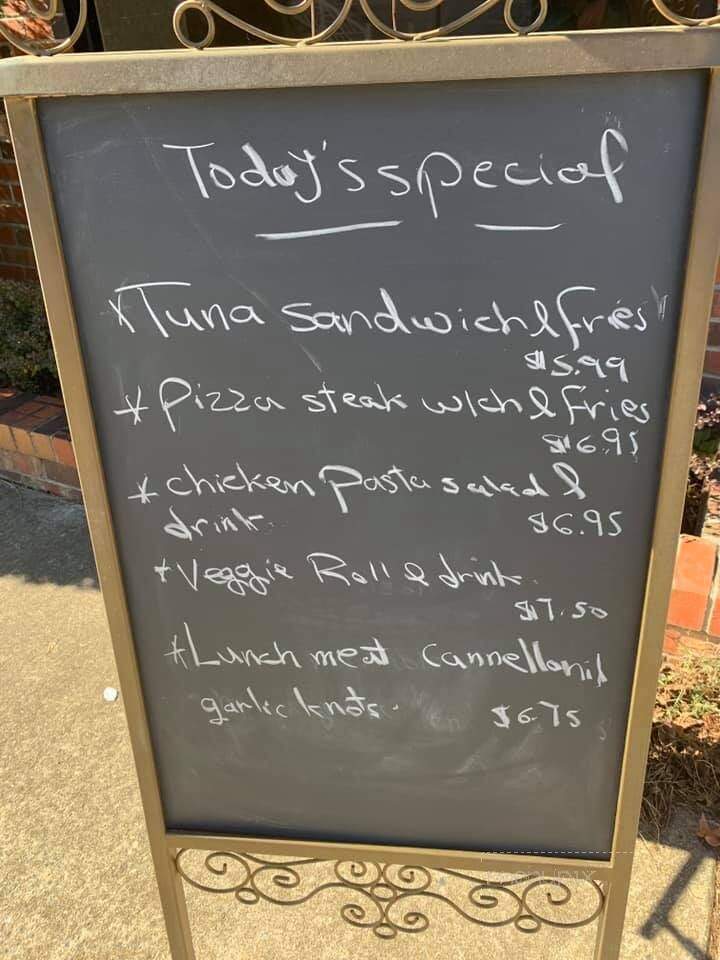 Today's special
*Tuna sandwich & fries
$5.99
* Pizza steak w/ch & fries
$6.95
* chicken Pasta salad &
drink
$6.95
* Veggie Roll & drink.
$7.50
*Lunch meat cannelloni &
garlic knots. $6.75